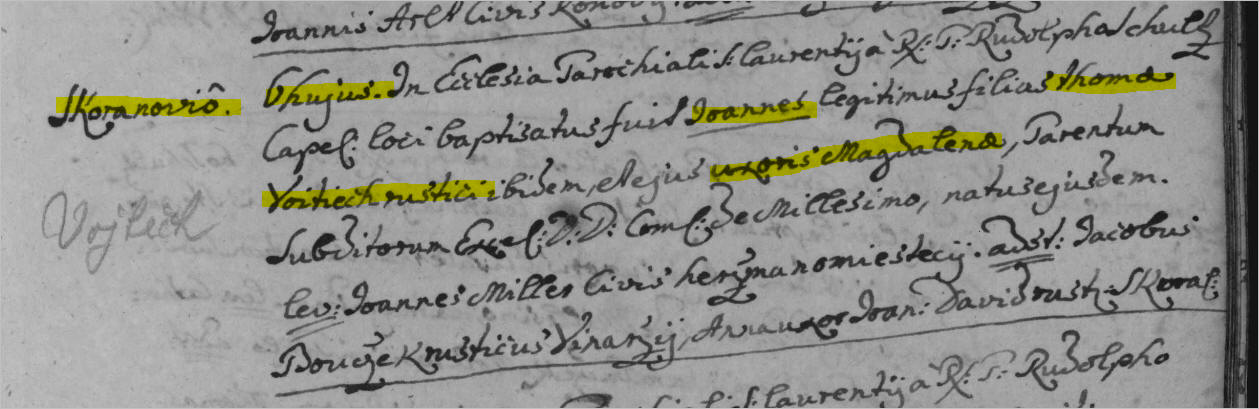 Joannis Civis
Skoranoviô. 6 hujus. In Ecclesia Parochiali S: Laurentij à R: P: Rudolpho Schultz
Capel: loci baptisatus fuit Joannes legitimus filius Thomæ
Voitiech rustici ibidem, et ejus uxoris Magdalenæ, Parentum
Vojtěch
Subditorum Excel: D: D: Com: de Millesimo, natus ejusdem.
lev: Joannes Miller Civis herzmanomiestecij. adst: Jacobus
Bouczek rusticus Vinarzij, Anna uxor Joan: David rust: Skoral:
Laurentij à R: P: Rudolpho